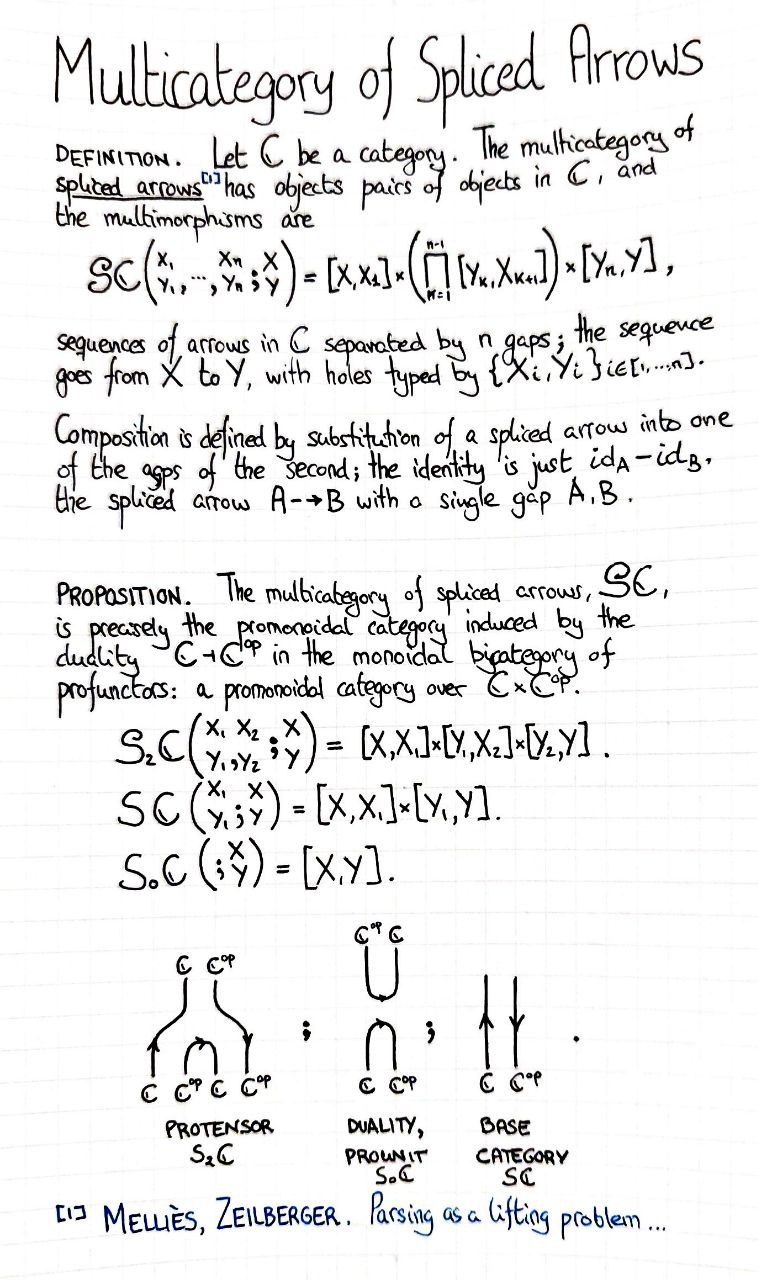 Multicategory of Spliced Arrows
DEFINITION. Let ℂ be a category. The multicategory of
spliced arrows[1] has objects pairs of objects in ℂ, and
the multimorphisms are
𝒮ℂ(X₁ Y₁, ..., Xₙ Yₙ ; X Y) = [X,X₁]×(∏ₖ₌₁ⁿ⁻¹ [Yₖ,Xₖ₊₁])×[Yₙ,Y],
sequences of arrows in ℂ separated by n gaps; the sequence
goes from X to Y, with holes typed by {Xᵢ,Yᵢ}i∈[1,...,n].
Composition is defined by substitution of a spliced arrow into one
of the agps of the second; the identity is just id_A – id_B,
the spliced arrow A-→B with a single gap A,B.
PROPOSITION. The multicategory of spliced arrows, 𝒮ℂ,
is precisely the promonoidal category induced by the
duality ℂ⊣ℂᵒᵖ in the monoidal bicategory of
profunctors: a promonoidal category over ℂ×ℂᵒᵖ.
S₂ℂ(X₁ Y₁, X₂ Y₂ ; X Y) = [X,X₁]×[Y₁,X₂]×[Y₂,Y].
Sℂ(X₁ Y₁ ; X Y) = [X,X₁]×[Y₁,Y].
S₀ℂ(; X Y) = [X,Y].
ℂᵒᵖ ℂ
ℂ ℂᵒᵖ
; ; .
ℂ ℂᵒᵖ ℂ ℂᵒᵖ ℂ ℂᵒᵖ ℂ ℂᵒᵖ
PROTENSOR DUALITY, BASE
S₂ℂ PROUNIT CATEGORY
S₀ℂ Sℂ
[1] MELLIÈS, ZEILBERGER. Parsing as a lifting problem...